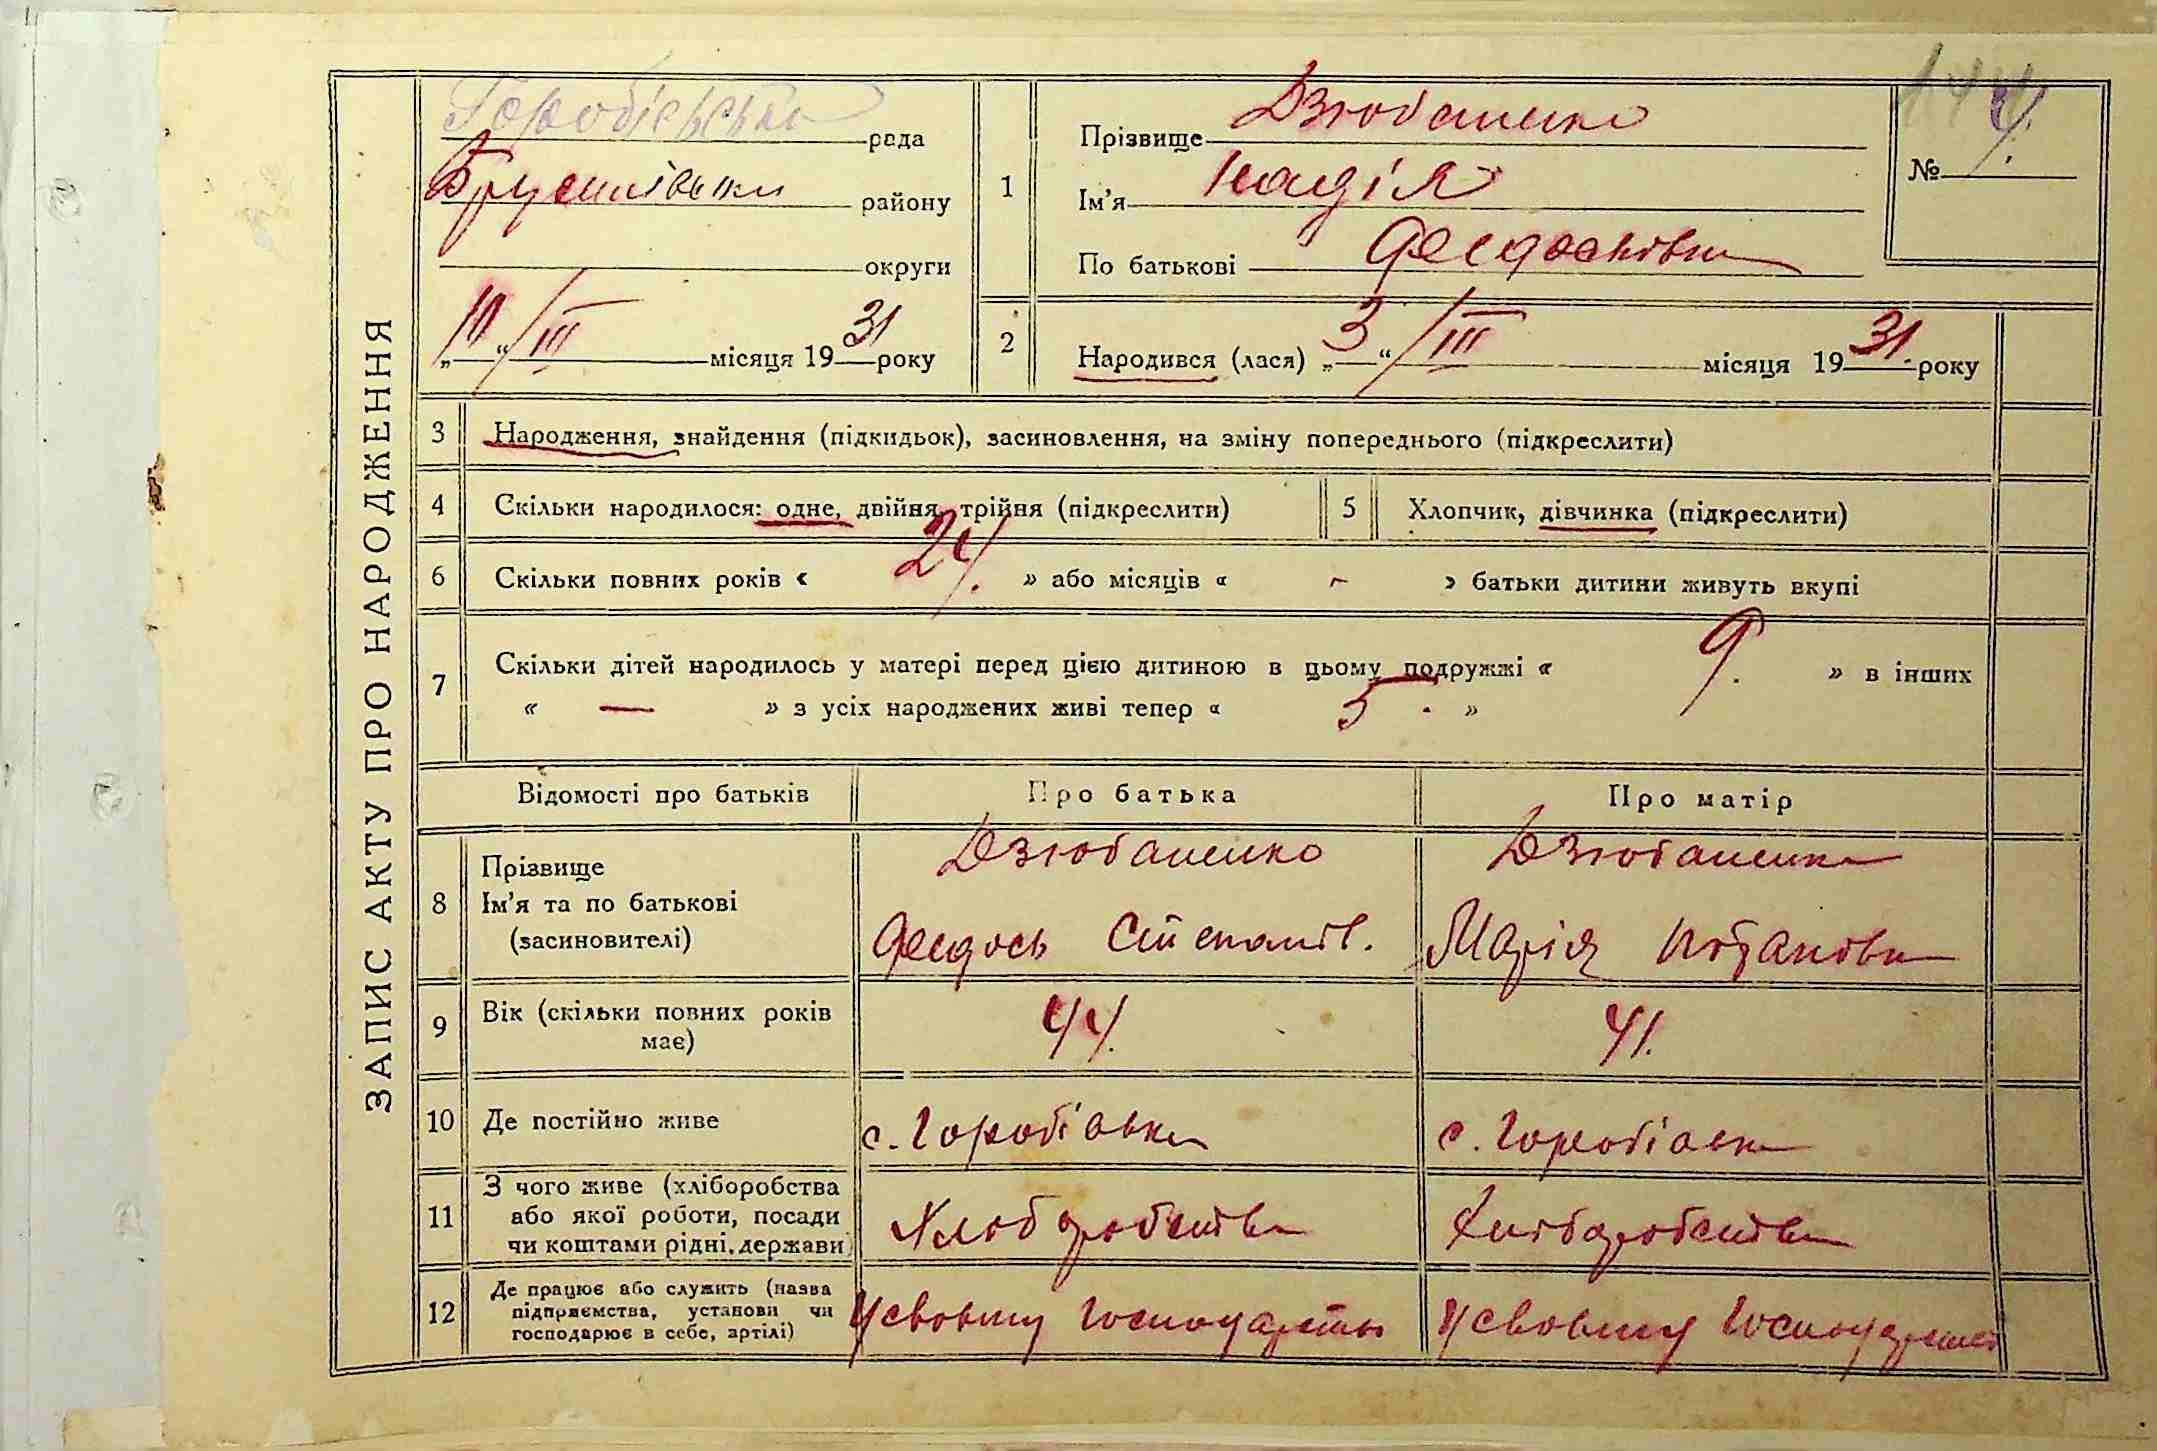 ЗАПИС АКТУ ПРО НАРОДЖЕННЯ
рада
Брусилівськи району
округи
„10“/III місяця 1931 року
1
Прізвище Дзюбаненко
Ім'я Надія
По батькові Федосьівна
№ 4.
2
Народився (лася) „3“/III місяця 1931. року
3 Народження, знайдення (підкидьок), засиновлення, на зміну попереднього (підкреслити)
4 Скільки народилося: одне, двійня, трійня (підкреслити)
5 Хлопчик, дівчинка (підкреслити)
6 Скільки повних років « 24. » або місяців « - » батьки дитини живуть вкупі
7 Скільки дітей народилось у матері перед цією дитиною в цьому подружжі « 9. » в інших
« — » з усіх народжених живі тепер « 5. »
Відомості про батьків Про батька Про матір
8 Прізвище
Ім'я та по батькові
(засиновителі)
Дзюбаненко
Федось Степанів.
Дзюбаненко
Марія
9 Вік (скільки повних років
має)
44.
41.
10 Де постійно живе
с. Горобіовка
с. Горобіовка
11 З чого живе (хліборобства
або якої роботи, посади
чи коштами рідні, держави)
Хлоборобства
Хліборобства
12 Де працює або служить (назва
підприємства, установи чи
господарює в себе, артілі)
У своєму господарстві
У своєму господарстві